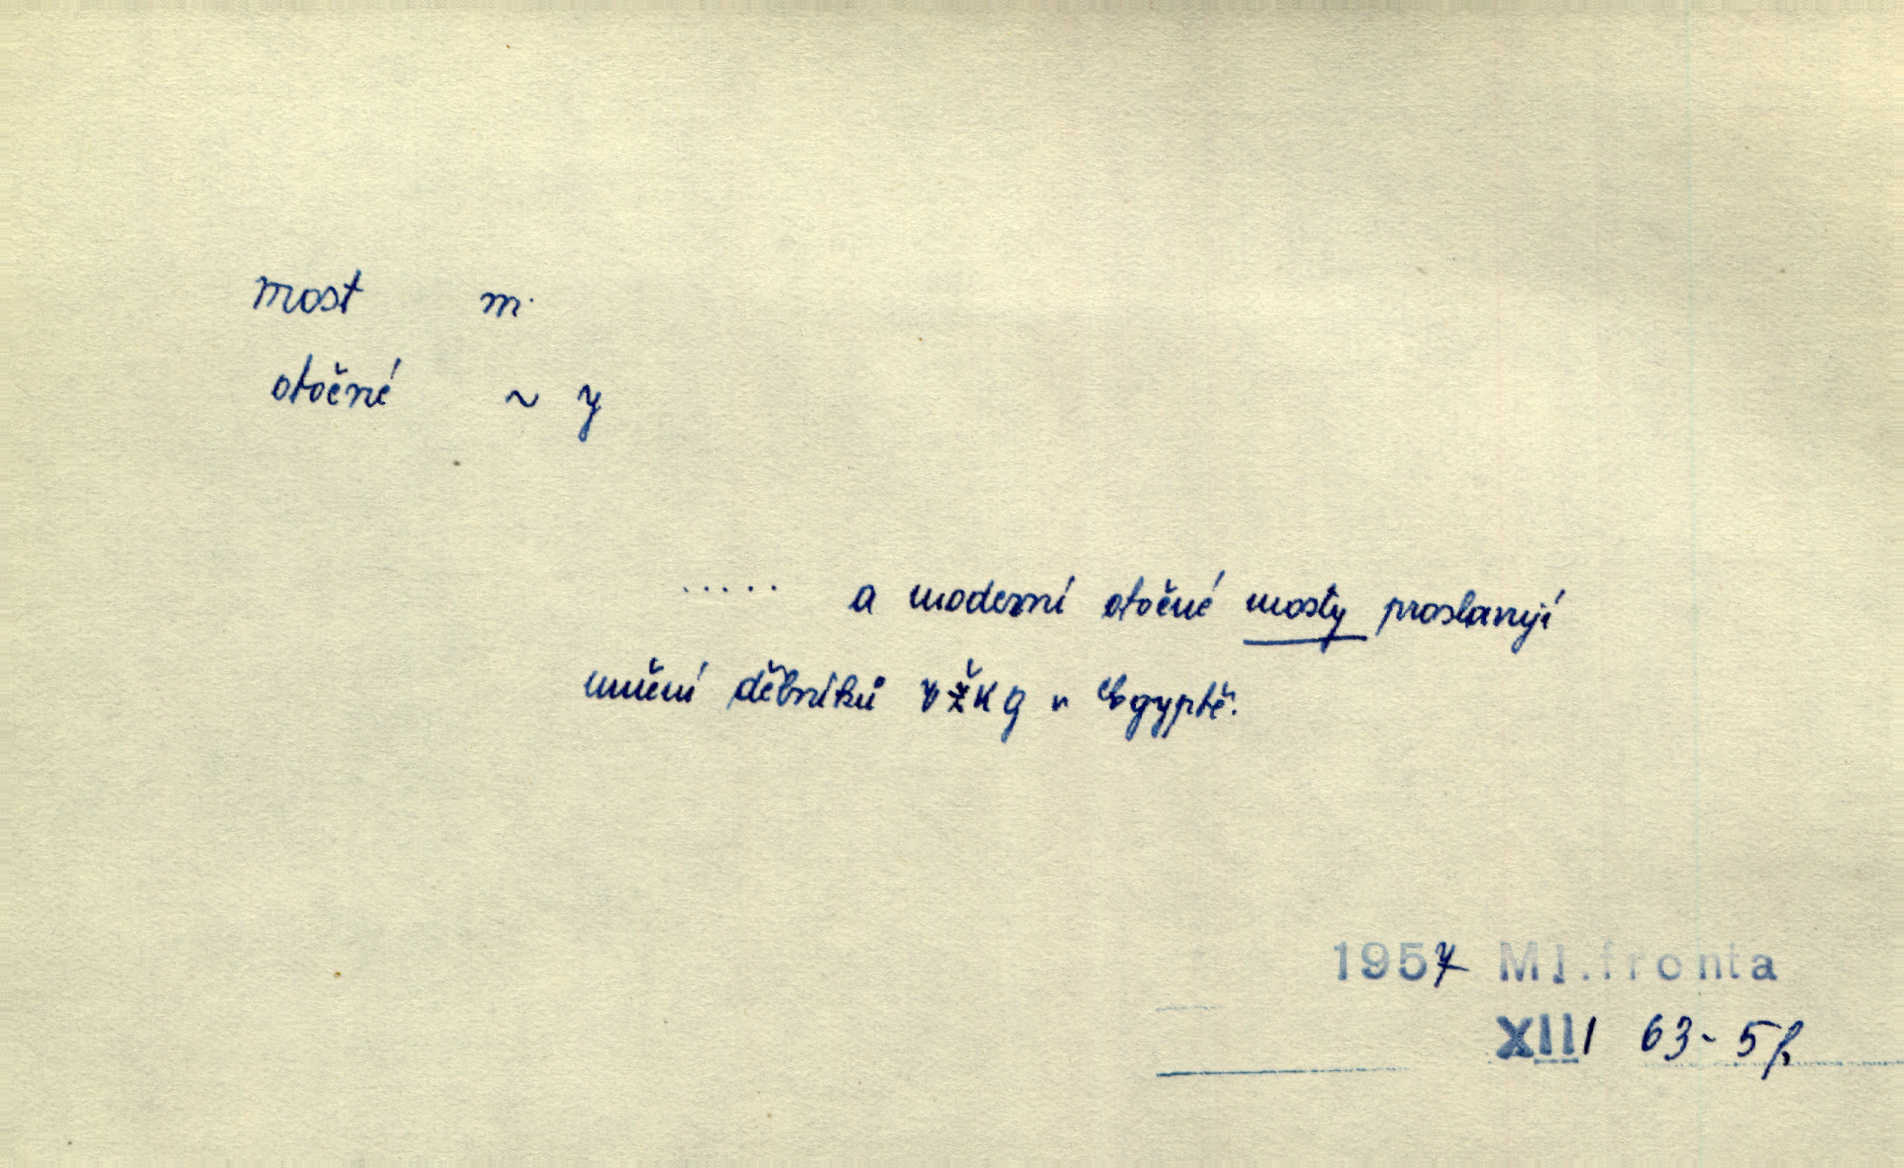 most m.
otočné ~ y
..... a moderní otočné mosty proslavují
umění dělníků VŽKG v Egyptě.
1957 Ml.fronta
XIII 63-5